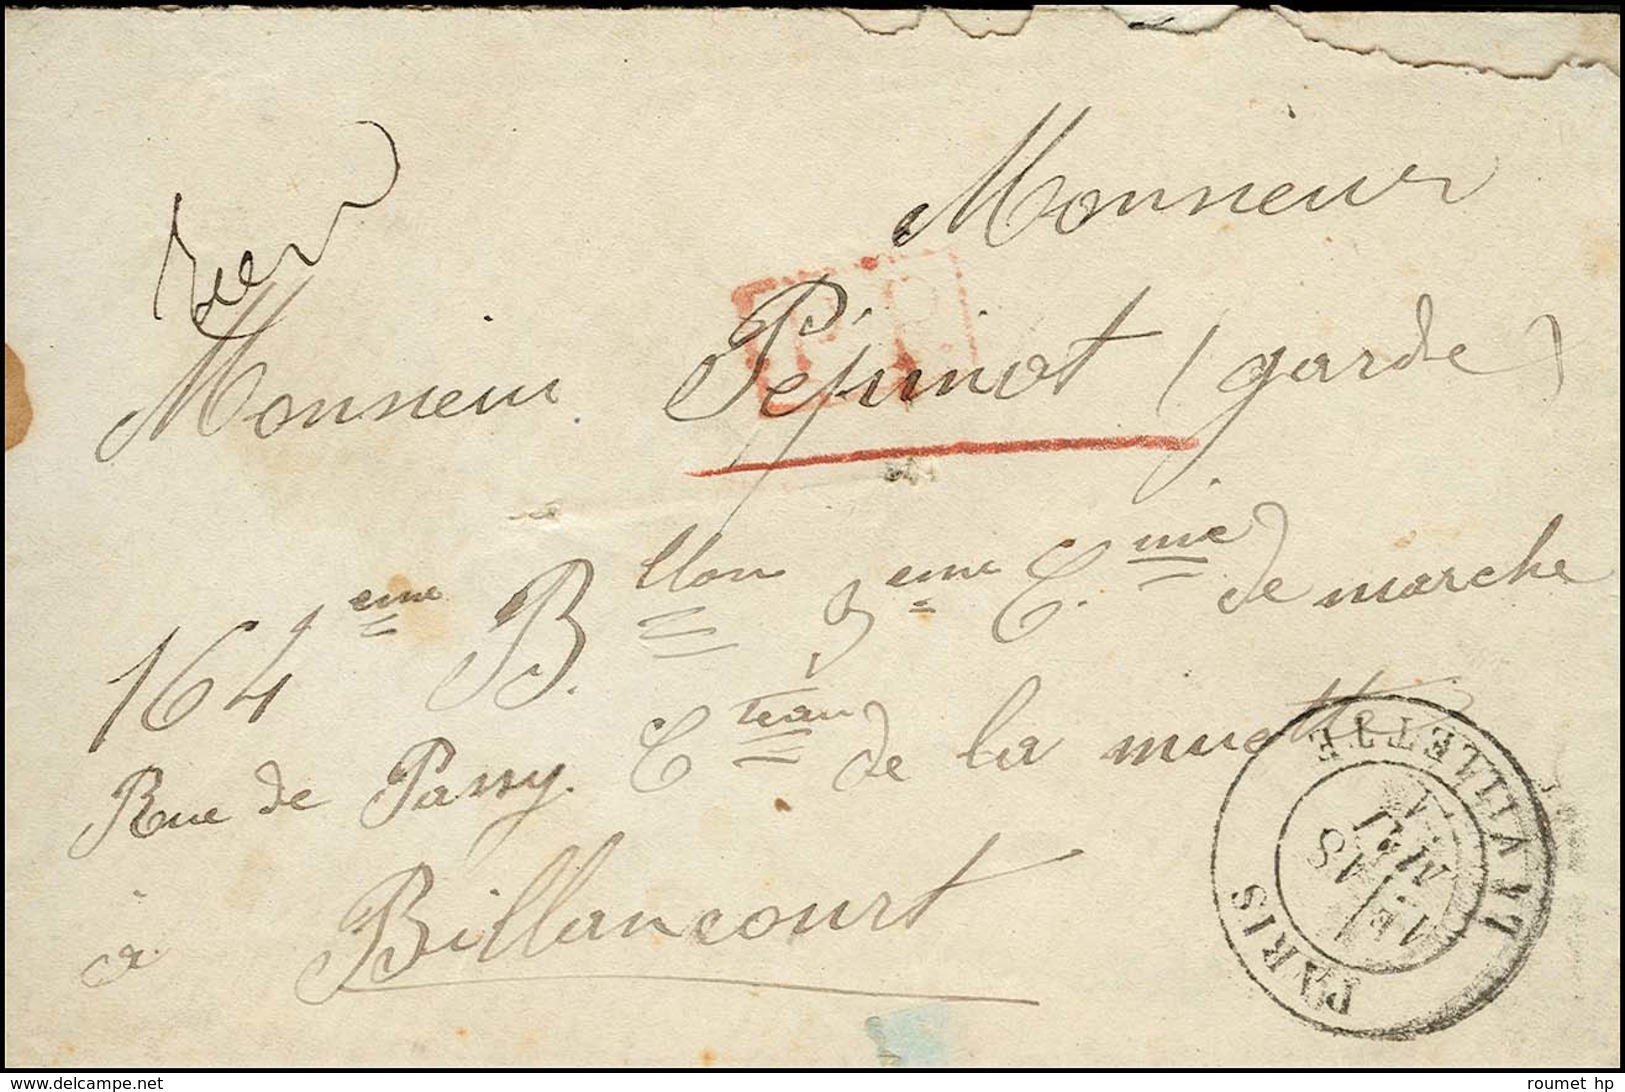 Monsieur
Monsieur Pépinot (garde)
P.P.
164eme B.llon 3eme C.nie de marche
Rue de Passy. Cteau de la muette
à Billancourt
PARIS LA VILLETTE
1E
18
roumet hp